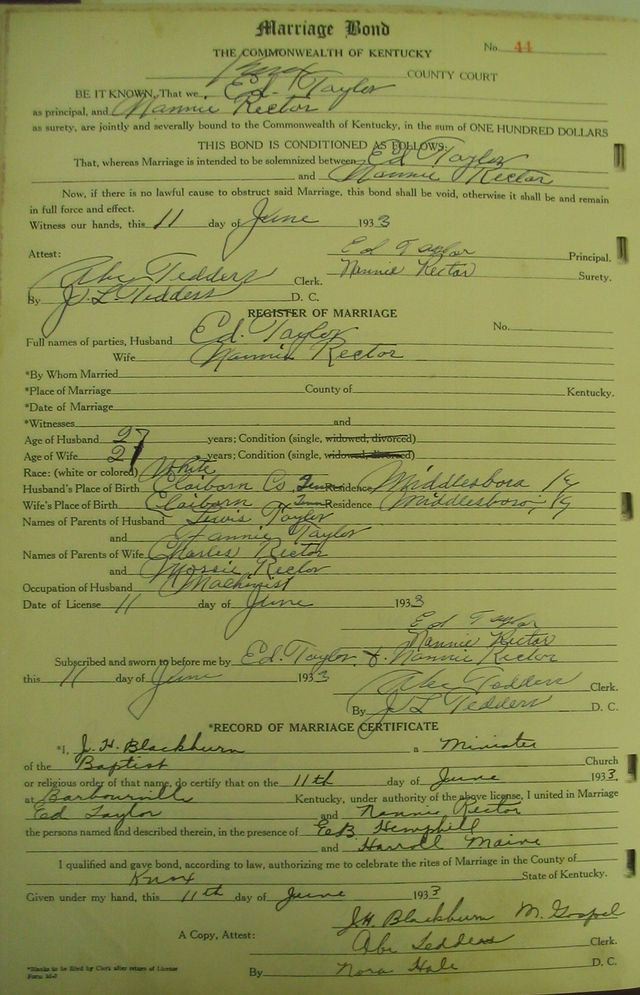 Marriage Bond
THE COMMONWEALTH OF KENTUCKY
No. 44
Knox COUNTY COURT
BE IT KNOWN, That we Ed. Taylor
as principal, and Nannie Rector
as surety, are jointly and severally bound to the Commonwealth of Kentucky, in the sum of ONE HUNDRED DOLLARS
THIS BOND IS CONDITIONED AS FOLLOWS:
That, whereas Marriage is intended to be solemnized between Ed Taylor
and Nannie Rector
Now, if there is no lawful cause to obstruct said Marriage, this bond shall be void, otherwise it shall be and remain
in full force and effect.
Witness our hands, this 11 day of June 1933
Ed Taylor Principal.
Attest: Nannie Rector Surety.
Abe Tedders Clerk.
By J. L Tedders D. C.
REGISTER OF MARRIAGE
No.
Full names of parties, Husband Ed. Taylor
Wife Nannie Rector
*By Whom Married
*Place of Marriage County of Kentucky.
*Date of Marriage
*Witnesses and
Age of Husband 27 years; Condition (single, widowed, divorced)
Age of Wife 21 years; Condition (single, widowed, divorced)
Race: (white or colored) White
Husband's Place of Birth Claiborn Co Tenn Residence Middlesboro Ky
Wife's Place of Birth Claiborn Tenn Residence Middlesboro, Ky
Names of Parents of Husband Lewis Taylor
and Fannie Taylor
Names of Parents of Wife Charles Rector
and Rector
Occupation of Husband Machinist
Date of License 11 day of June 1933
Ed Taylor
Nannie Rector
Subscribed and sworn to before me by Ed. Taylor & Nannie Rector
this 11 day of June 1933
Abe Tedders Clerk.
By J L Tedders D. C.
*RECORD OF MARRIAGE CERTIFICATE
*I, J. H. Blackburn a Minister
of the Baptist Church
or religious order of that name, do certify that on the 11th day of June 1933.
at Barbourville Kentucky, under authority of the above license, I united in Marriage
Ed Taylor and Nannie Rector
the persons named and described therein, in the presence of Hemphill
and Harrold Maine
I qualified and gave bond, according to law, authorizing me to celebrate the rites of Marriage in the County of
Knox State of Kentucky.
Given under my hand, this 11th day of June 1933
J.H. Blackburn M. Gospel
A Copy, Attest: Abe Tedders Clerk.
By Nora Hale D. C.
*Blanks to be filed by Clerk after return of License